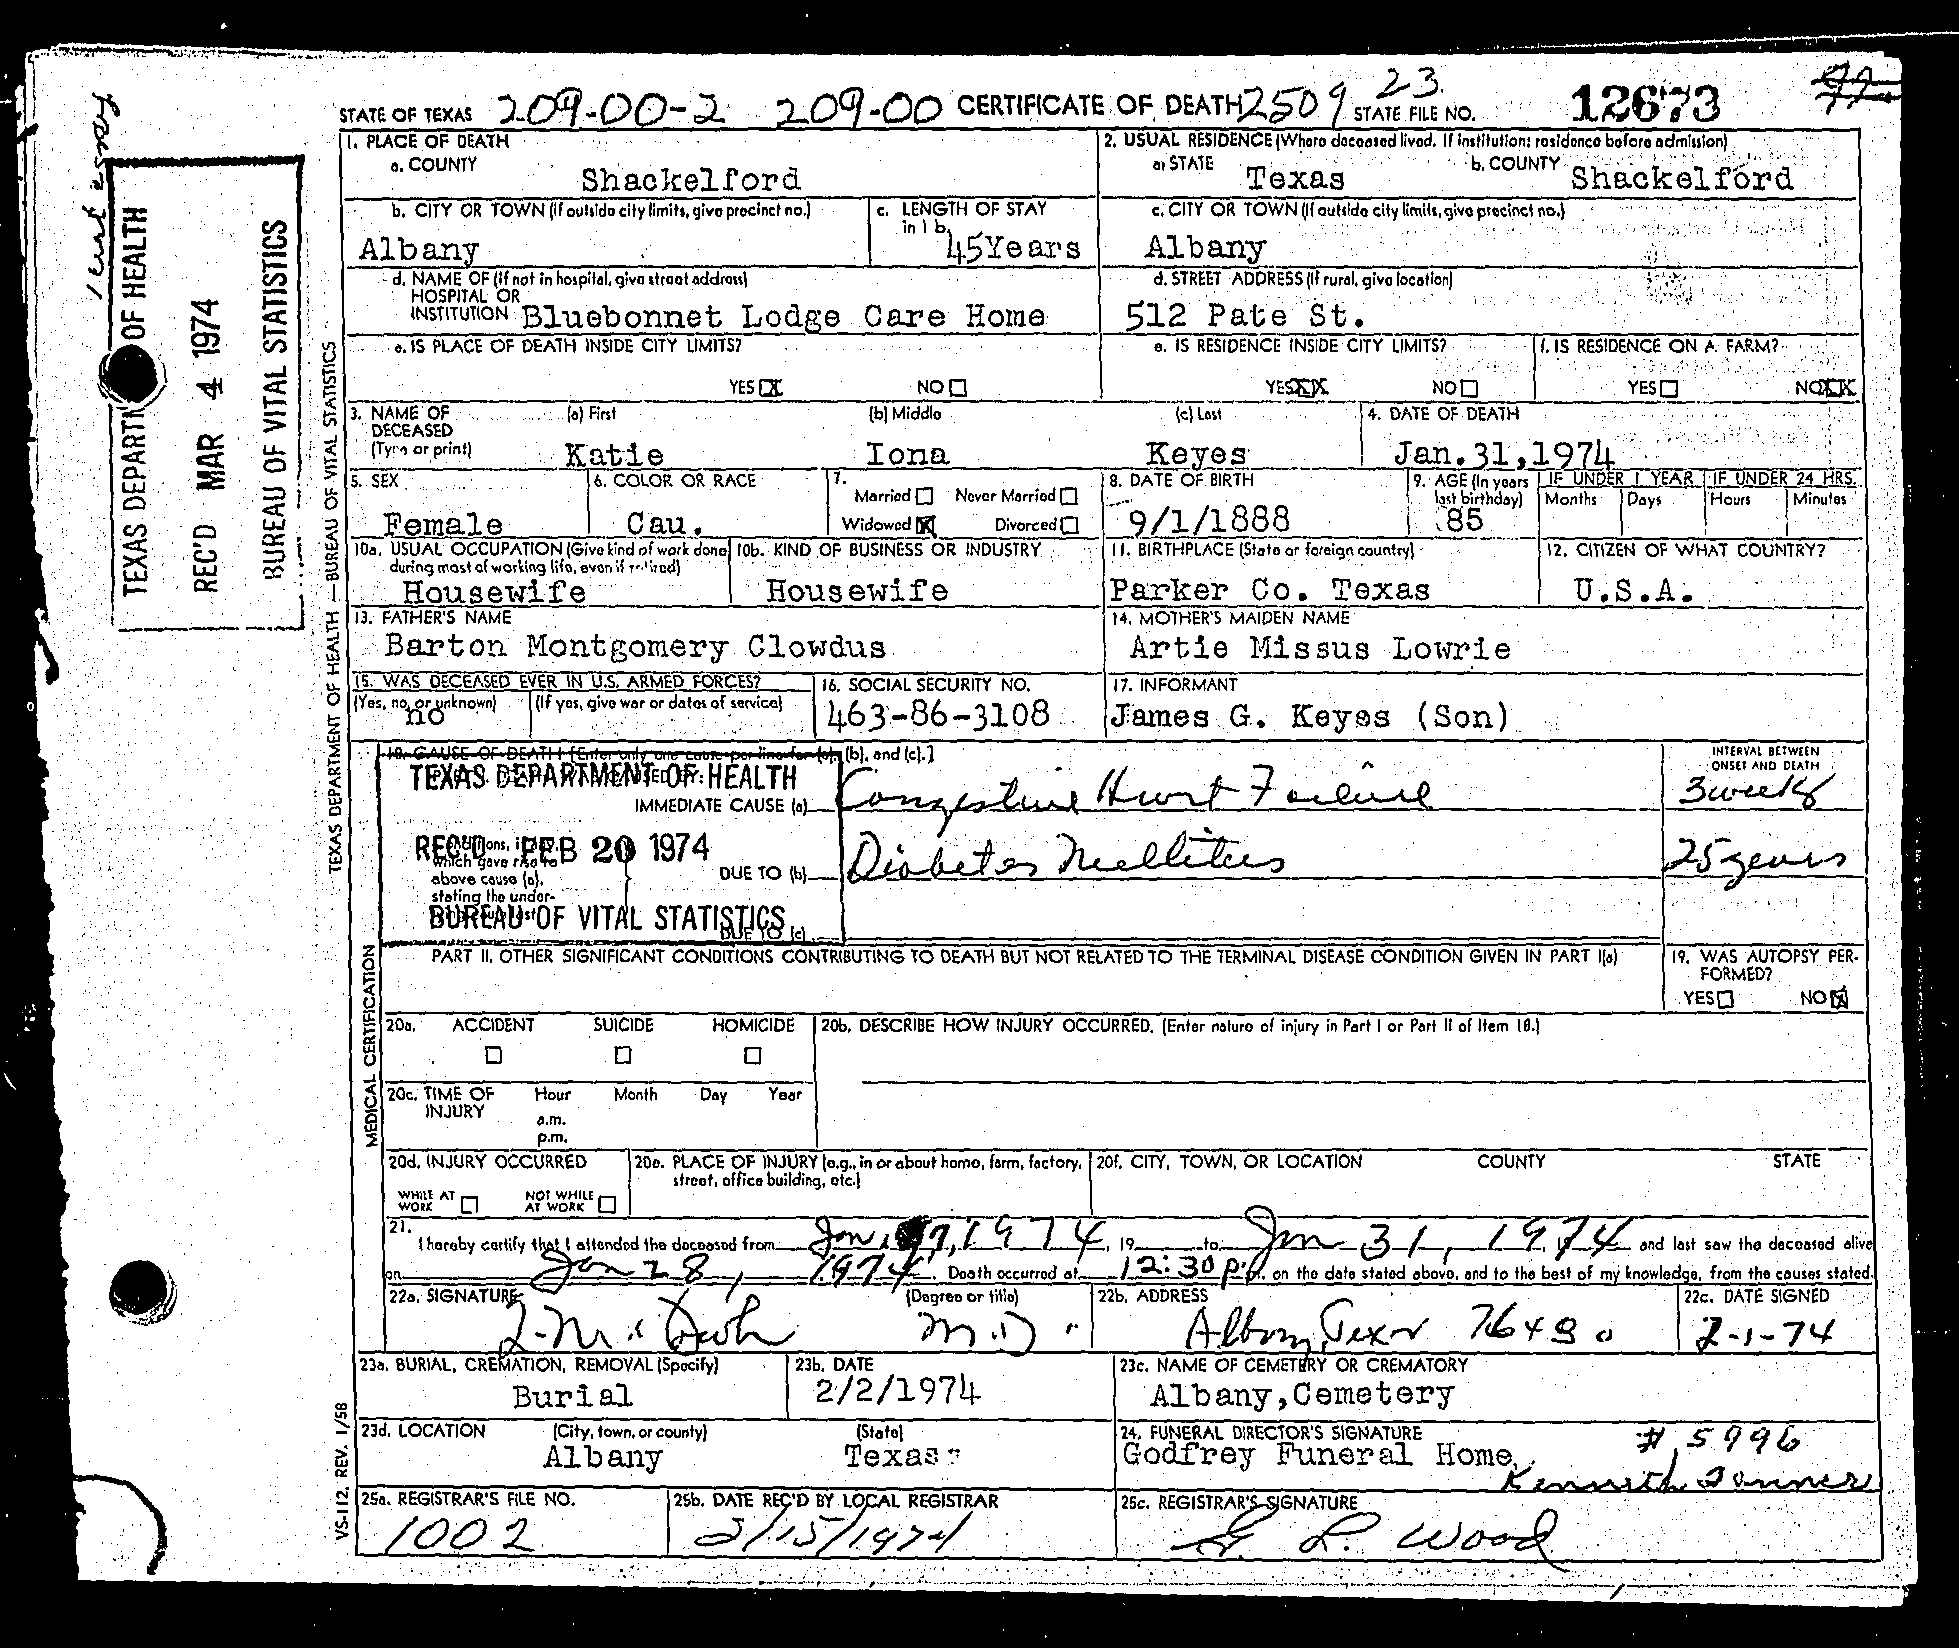 STATE OF TEXAS 209-00-2 209-00 CERTIFICATE OF DEATH 2509 23 STATE FILE NO. 12673
TEXAS DEPARTMENT OF HEALTH
REC'D MAR 4 1974
BUREAU OF VITAL STATISTICS
TEXAS DEPARTMENT OF HEALTH — BUREAU OF VITAL STATISTICS
1. PLACE OF DEATH
a. COUNTY
Shackelford
2. USUAL RESIDENCE (Where deceased lived. If institution: residence before admission)
a. STATE
Texas
b. COUNTY
Shackelford
b. CITY OR TOWN (If outside city limits, give precinct no.)
Albany
c. LENGTH OF STAY in 1 b.
45Years
c. CITY OR TOWN (If outside city limits, give precinct no.)
Albany
d. NAME OF (If not in hospital, give street address)
HOSPITAL OR
INSTITUTION Bluebonnet Lodge Care Home
d. STREET ADDRESS (If rural, give location)
512 Pate St.
e. IS PLACE OF DEATH INSIDE CITY LIMITS?
YES X NO
e. IS RESIDENCE INSIDE CITY LIMITS?
YES XX NO
f. IS RESIDENCE ON A FARM?
YES NO XX
3. NAME OF DECEASED (Type or print)
(a) First
Katie
(b) Middle
Iona
(c) Last
Keyes
4. DATE OF DEATH
Jan.31,1974
5. SEX
Female
6. COLOR OR RACE
Cau.
7.
Married Never Married
Widowed X Divorced
8. DATE OF BIRTH
9/1/1888
9. AGE (In years last birthday)
85
IF UNDER 1 YEAR
Months Days
IF UNDER 24 HRS.
Hours Minutes
10a. USUAL OCCUPATION (Give kind of work done during most of working life, even if retired)
Housewife
10b. KIND OF BUSINESS OR INDUSTRY
Housewife
11. BIRTHPLACE (State or foreign country)
Parker Co. Texas
12. CITIZEN OF WHAT COUNTRY?
U.S.A.
13. FATHER'S NAME
Barton Montgomery Clowdus
14. MOTHER'S MAIDEN NAME
Artie Missus Lowrie
15. WAS DECEASED EVER IN U.S. ARMED FORCES?
(Yes, no, or unknown)
no
(If yes, give war or dates of service)
16. SOCIAL SECURITY NO.
463-86-3108
17. INFORMANT
James G. Keyes (Son)
18. CAUSE OF DEATH [Enter only one cause per line for (a), (b), and (c).]
INTERVAL BETWEEN
ONSET AND DEATH
TEXAS DEPARTMENT OF HEALTH
IMMEDIATE CAUSE (a) Congestive Heart Failure
3 weeks
REC'D FEB 20 1974
which gave rise to
above cause (a),
stating the under-
DUE TO (b) Diabetes Mellitus
25 years
BUREAU OF VITAL STATISTICS
DUE TO (c)
MEDICAL CERTIFICATION
PART II. OTHER SIGNIFICANT CONDITIONS CONTRIBUTING TO DEATH BUT NOT RELATED TO THE TERMINAL DISEASE CONDITION GIVEN IN PART I(a)
19. WAS AUTOPSY PERFORMED?
YES NO X
20a. ACCIDENT SUICIDE HOMICIDE
20b. DESCRIBE HOW INJURY OCCURRED. (Enter nature of injury in Part I or Part II of Item 18.)
20c. TIME OF INJURY
Hour Month Day Year
a.m.
p.m.
20d. INJURY OCCURRED
WHILE AT WORK NOT WHILE AT WORK
20e. PLACE OF INJURY (e.g., in or about home, farm, factory, street, office building, etc.)
20f. CITY, TOWN, OR LOCATION COUNTY STATE
21.
I hereby certify that I attended the deceased from Jan, 7, 1974, 19 to Jan 31, 1974 and last saw the deceased alive
on Jan 28, 1974. Death occurred at 12:30 p.m. on the date stated above, and to the best of my knowledge, from the causes stated.
22a. SIGNATURE
(Degree or title)
M.D.
22b. ADDRESS
Albany, Texas 76430
22c. DATE SIGNED
2-1-74
23a. BURIAL, CREMATION, REMOVAL (Specify)
Burial
23b. DATE
2/2/1974
23c. NAME OF CEMETERY OR CREMATORY
Albany,Cemetery
23d. LOCATION (City, town, or county) (State)
Albany Texas
24. FUNERAL DIRECTOR'S SIGNATURE
Godfrey Funeral Home, # 5996
Kenneth
25a. REGISTRAR'S FILE NO.
1002
25b. DATE REC'D BY LOCAL REGISTRAR
2/15/1974
25c. REGISTRAR'S SIGNATURE
L. Wood
VS-112. REV. 1/58